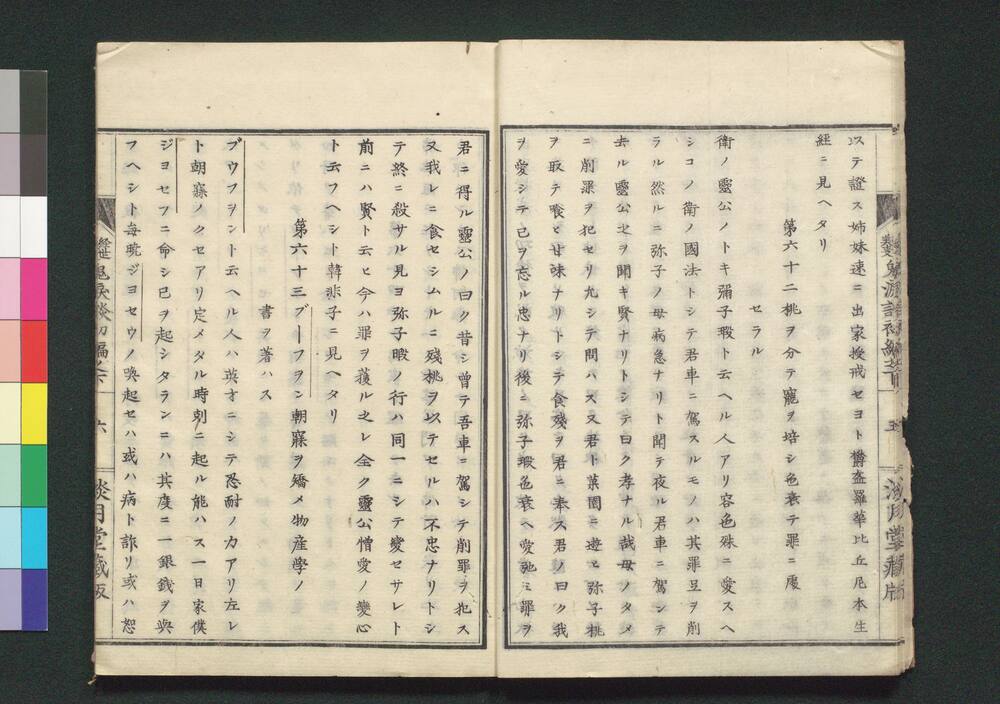 ステ證ス姉妹速ニ出家授戒セヨト欝盋羅華比丘尼本生
經ニ見ヘタリ
第六十二桃ヲ分テ寵ヲ培シ色衰テ罪ニ處
セラル
衛ノ靈公ノトキ彌子瑕ト云ヘル人アリ容色殊ニ愛スヘ
シコノ衛ノ國法トシテ君車ニ駕スルモノハ其罪豆ヲ削
ラル然ルニ弥子ノ母病急ナリト聞テ夜ル君車ニ駕シテ
去ル靈公之ヲ聞キ賢ナリトシテ曰ク孝ナル哉母ノタメ
ニ削罪ヲ犯セリ九シテ問ハス又君ト菓園ニ遊ヒ弥子桃
ヲ取テ喰ヒ甘味ナリトシテ食殘ヲ君ニ奉ス君ノ曰ク我
ヲ愛シテ己ヲ忘ル忠ナリ後ニ弥子瑕色衰ヘ愛弛ミ罪ヲ
君ニ得ル靈公ノ曰ク昔シ曾テ吾車ニ駕シテ削罪ヲ犯ス
又我レニ食セシムルニ殘桃ヲ以テセルハ不忠ナリトシ
テ終ニ殺サル見ヨ弥子暇ノ行ハ同一ニシテ變セサレト
前ニハ賢ト云ヒ今ハ罪ヲ獲ル之レ全ク靈公憎愛ノ變心
ト云フヘシト韓非子ニ見ヘタリ
第六十三ブーフヲン朝寐ヲ矯メ物産學ノ
書ヲ著ハス
ブウフヲント云ヘル人ハ英才ニシテ忍耐ノカアリ左レ
ト朝寐ノクセアリ定メタル時刻ニ起ル能ハス一日家僕
ジヨセフニ命シ已ヲ起シタランニハ其度ニ一銀錢ヲ與
フヘシト毎晩ジヨセウノ喚起セハ或ハ病ト詐リ或ハ恕
六
談月堂藏版